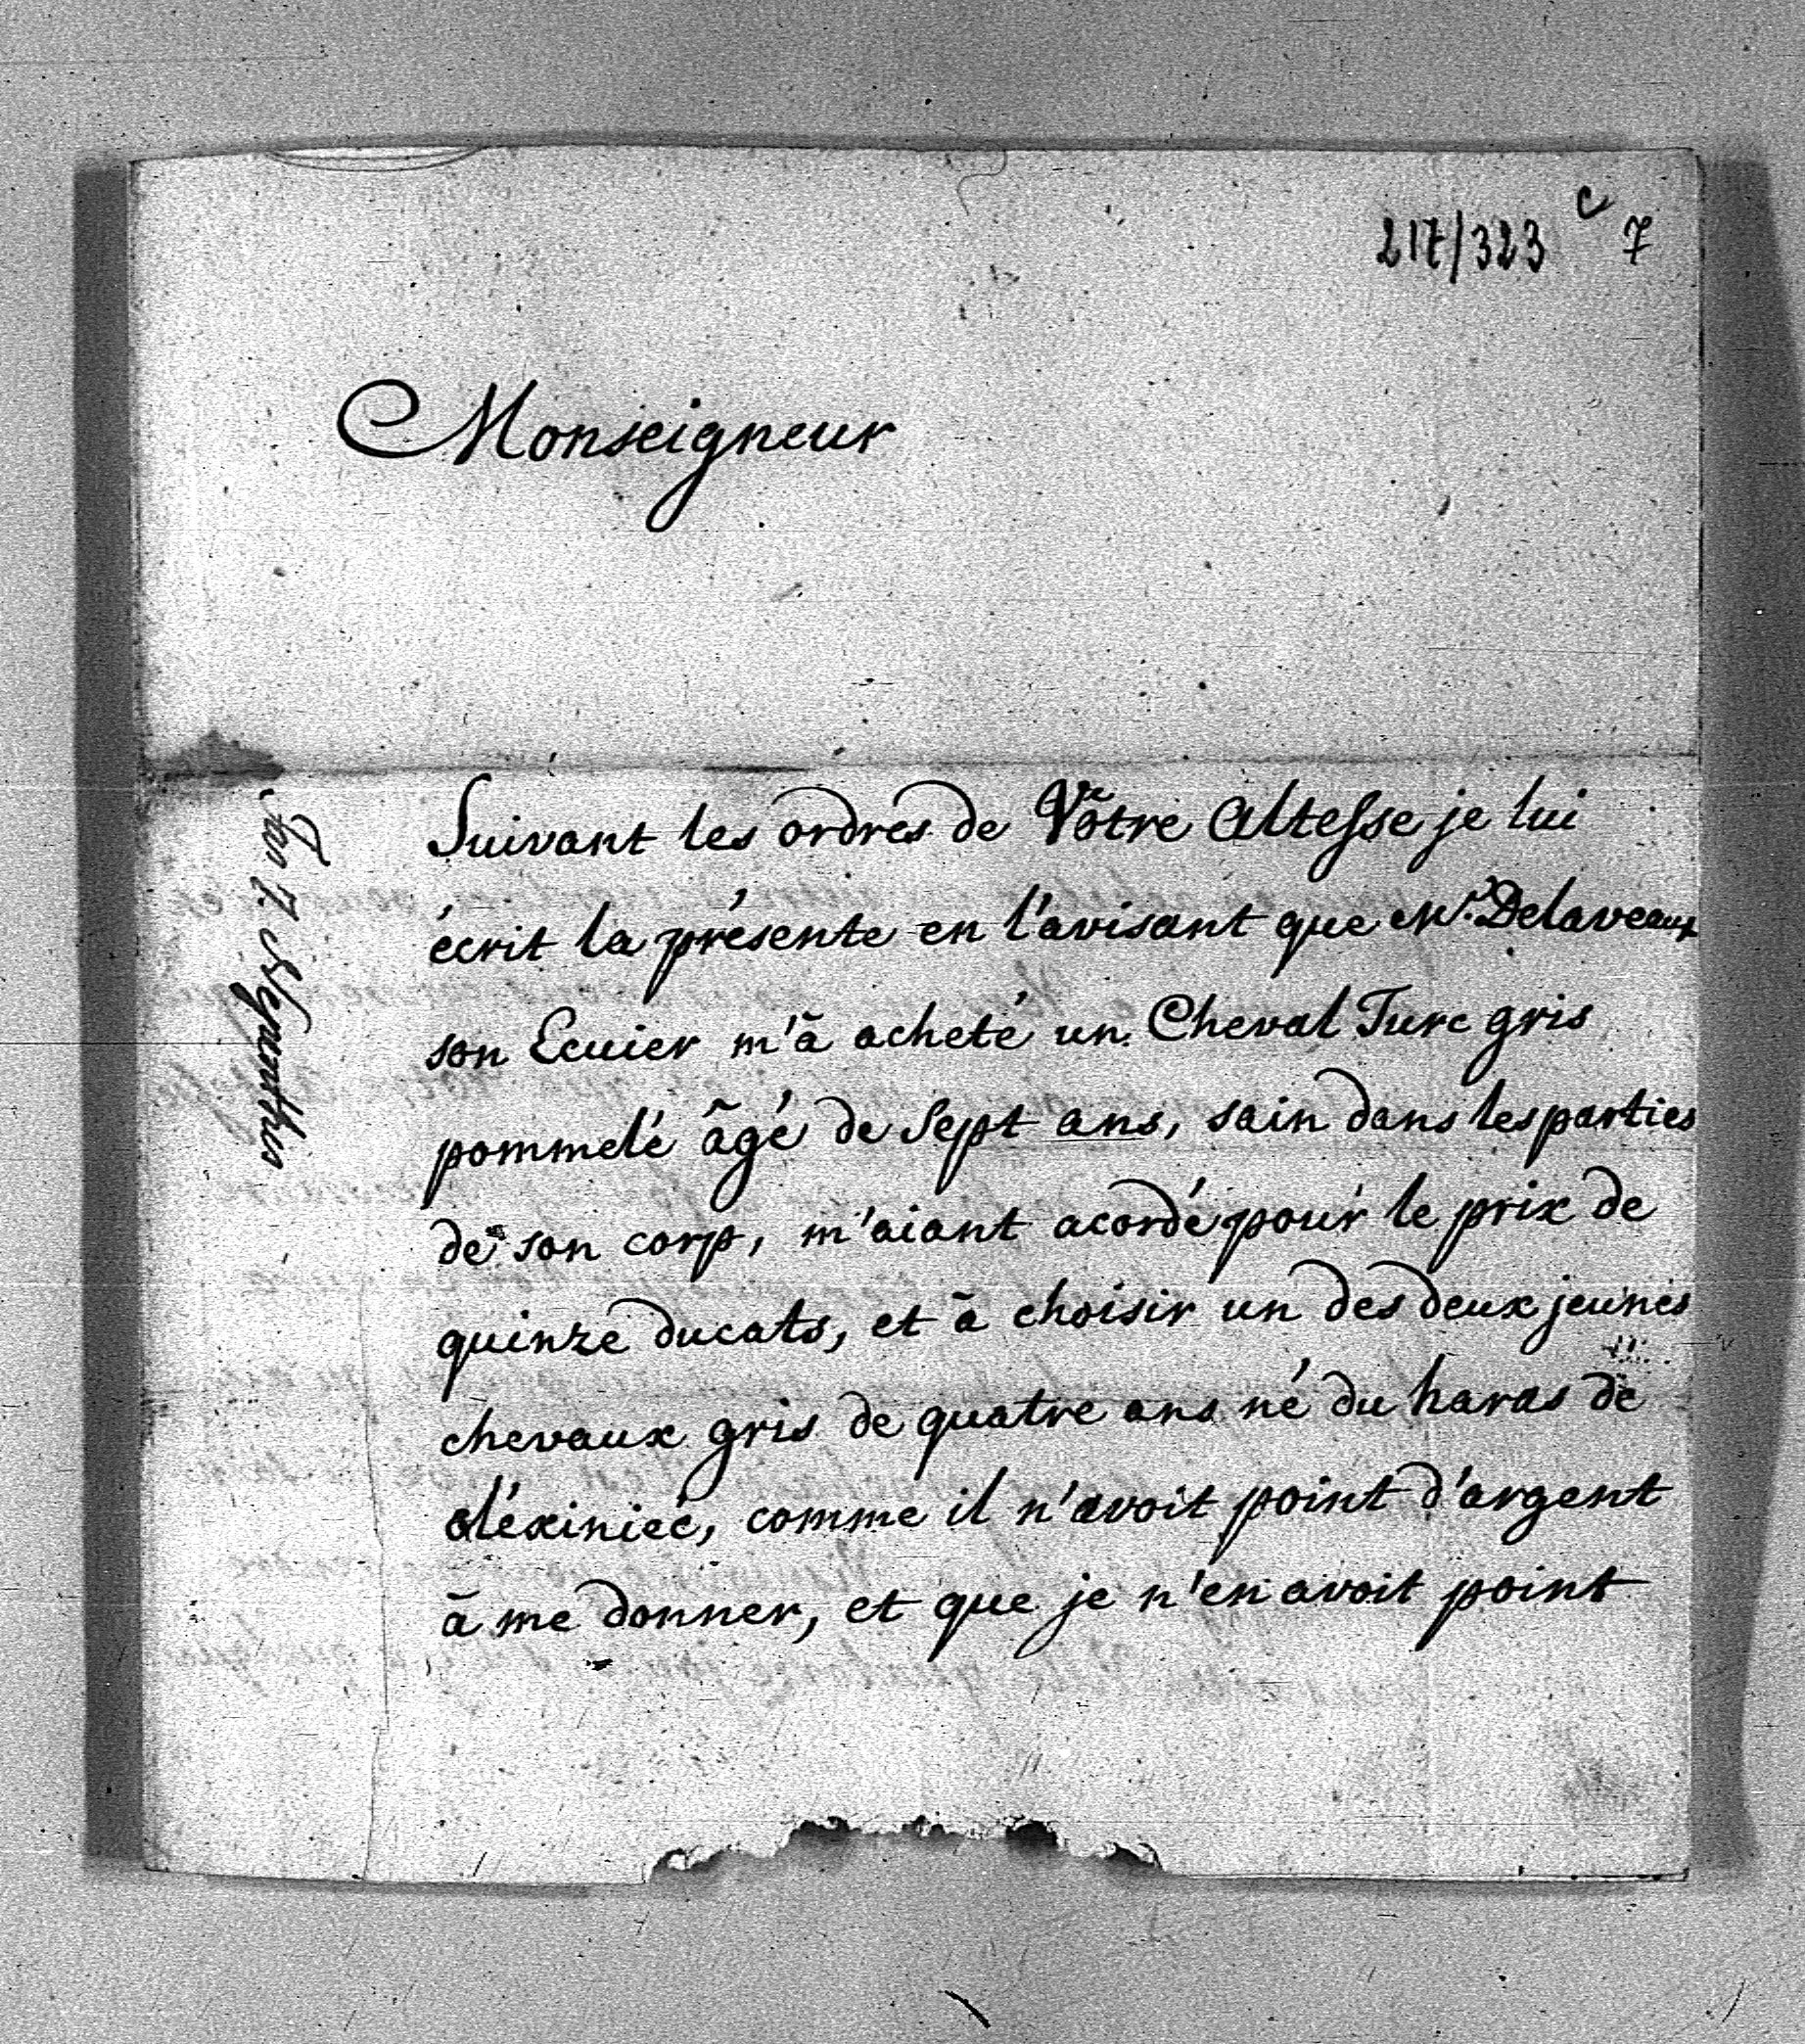 217/323 c 7
Monseigneur
Suivant les ordres de Vôtre Altesse je lui
écrit la présente en l'avisant que Mr. Delaveaux
son Ecuier m'à acheté un Cheval Turc gris
pommelé âgé de Sept ans, sain dans les parties
de son corp, m'aiant acordé pour le prix de
quinze ducats, et à choisir un des deux jeunes
chevaux gris de quatre ans né du haras de
oléxinieć, comme il n'avoit point d'argent
à me donner, et que je n'en avoit point